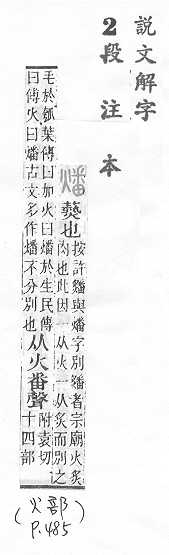 說文解字
2段注本
燔
爇也
按許與燔字別者宗廟火炙
肉也此因一从火一从炙而別之
毛於瓠葉傳曰加火曰燔於生民傳
曰傅火曰燔古文多作燔不分別也
从火番聲
附袁切
十四部
(火部
P.485)